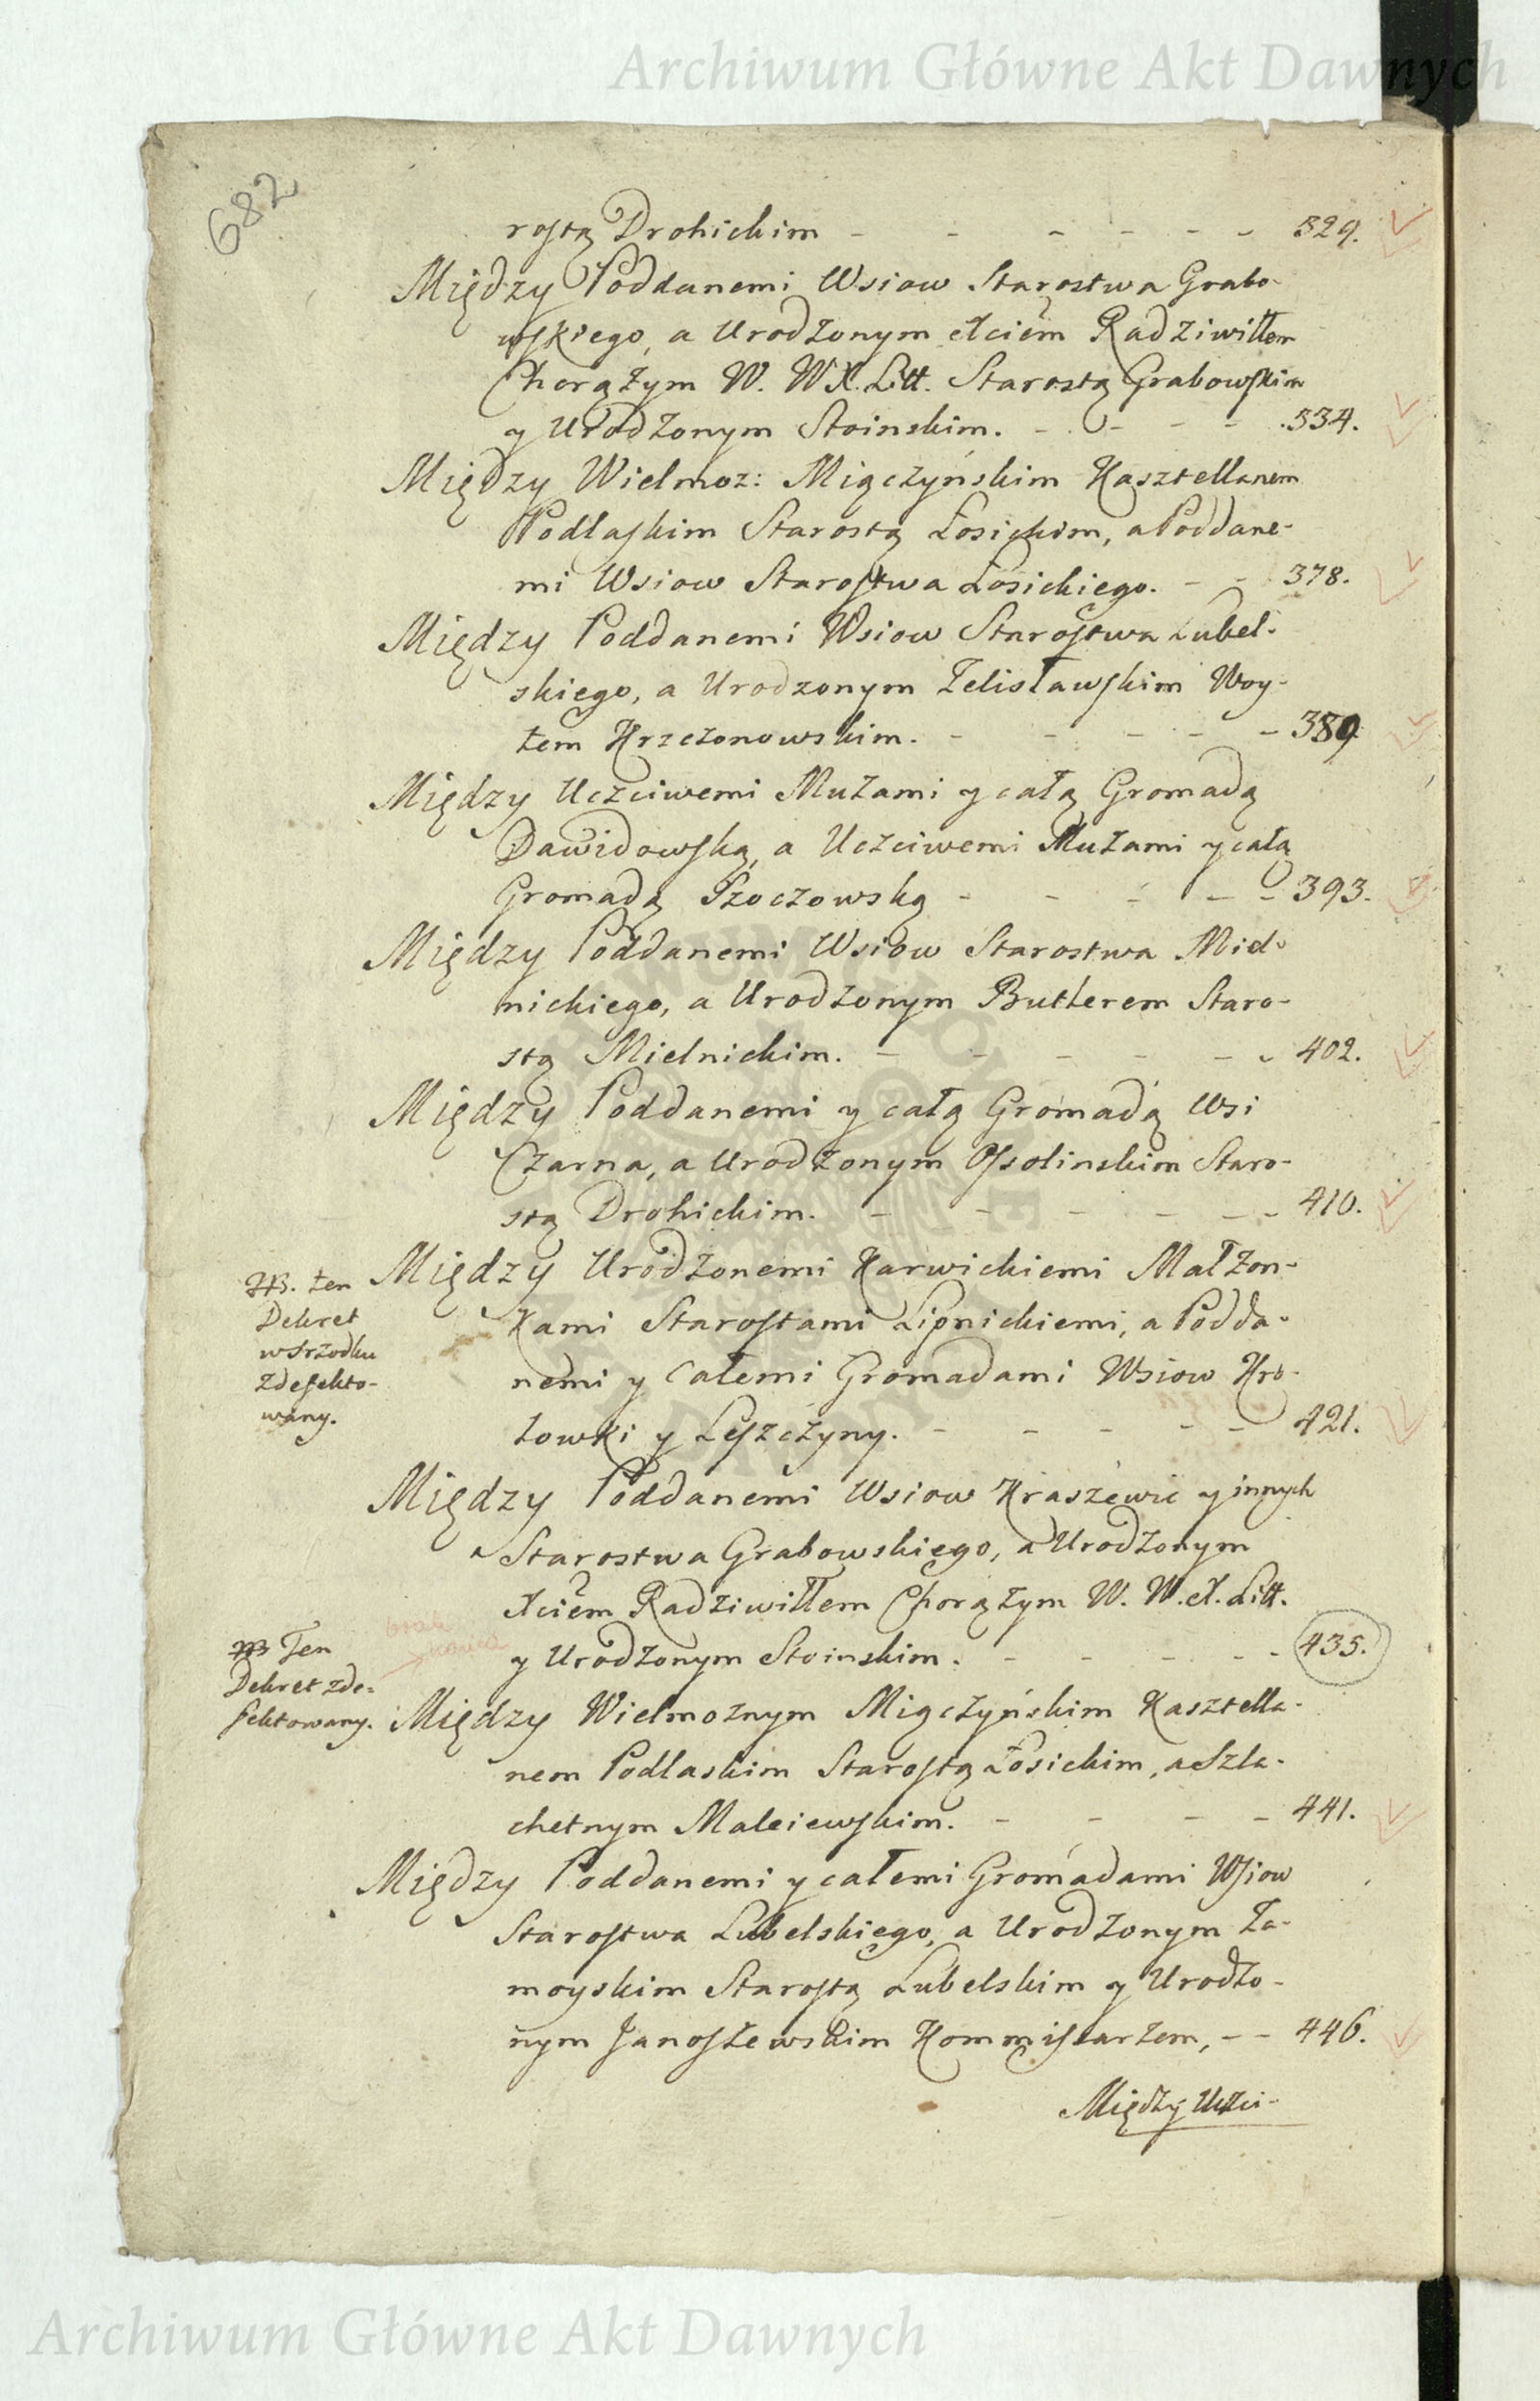 Archiwum Główne Akt Dawnych
682
rostą Drohickim - - - - - - 329.
Między Poddanemi Wsiow Starostwa Grabo-
wskiego, a Urodzonym Xciem Radziwiłłem
Chorążym W. W X. Litt. Starostą Grabowskim
y Urodzonym Stoinskim. - - - - 334.
Między Wielmoz: Miączyńskim Kasztellanem
Podlaskim Starostą Łosickim, a Poddane-
mi Wsiow Starostwa Łosickiego. - - 378.
Między Poddanemi Wsiow Starostwa Lubel-
skiego, a Urodzonym Zelisławskim Woy-
tem Krzczonowskim. - - - - - 389
Między Uczciwemi Mużami y całą Gromadą
Dawidowską, a Uczciwemi Mużami y całą
Gromadą - - - - - 393.
Między Poddanemi Wsiow Starostwa Miel-
nickiego, a Urodzonym Butlerem Staro-
stą Mielnickim. - - - - - - 402.
Między Poddanemi y całą Gromadą Wsi
Czarna, a Urodzonym Ossolinskim Staro-
stą Drohickim. - - - - - - 410.
Między Urodzonemi Karwickiemi Małżon-
kami Starostami Lipnickiemi, a Podda-
nemi y Całemi Gromadami Wsiow Kro-
towki y Leszczyny. - - - - - 421.
NB. ten
Dekret
w srzodku
zdefekto-
wany.
Między Poddanemi Wsiow Kraszewic y innych
Starostwa Grabowskiego, a Urodzonym
Xciem Radziwiłłem Chorążym W. W. X. Litt.
y Urodzonym Stoinskim. - - - - - 435.
brak
końca
NB Ten
Dekret zde-
fektowany.
Między Wielmożnym Miączyńskim Kasztella-
nem Podlaskim Starostą Łosickim, a Szla-
chetnym Maleiewskim. - - - - 441.
Między Poddanemi y całemi Gromadami Wsiow
Starostwa Lubelskiego, a Urodzonym Za-
moyskim Starostą Lubelskim y Urodzo-
nym Janoszewskim Kommissarzem, - - 446.
Między Uczci-
Archiwum Główne Akt Dawnych